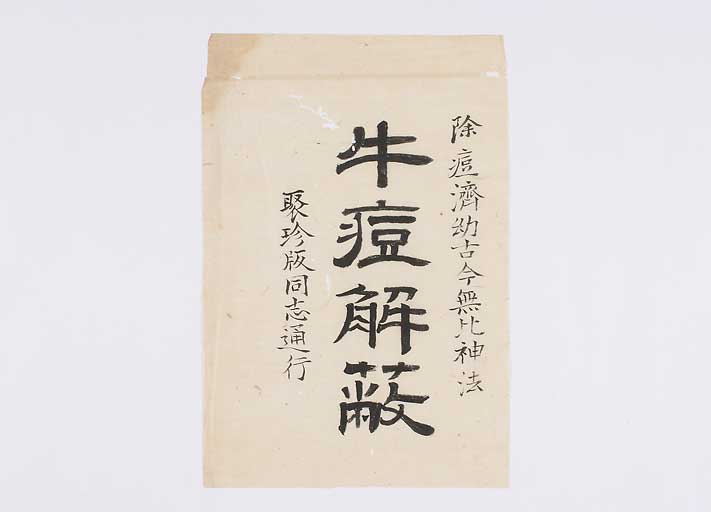 除痘濟幼古今無比神法
牛痘解蔽
聚珍版同志通行